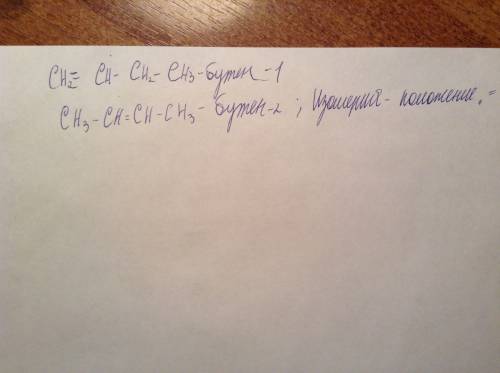 CH₂= CH- CH₂- CH₃-бутен-1
CH₃-CH=CH-CH₃- бутен-2 ; Изомерия- положение, =